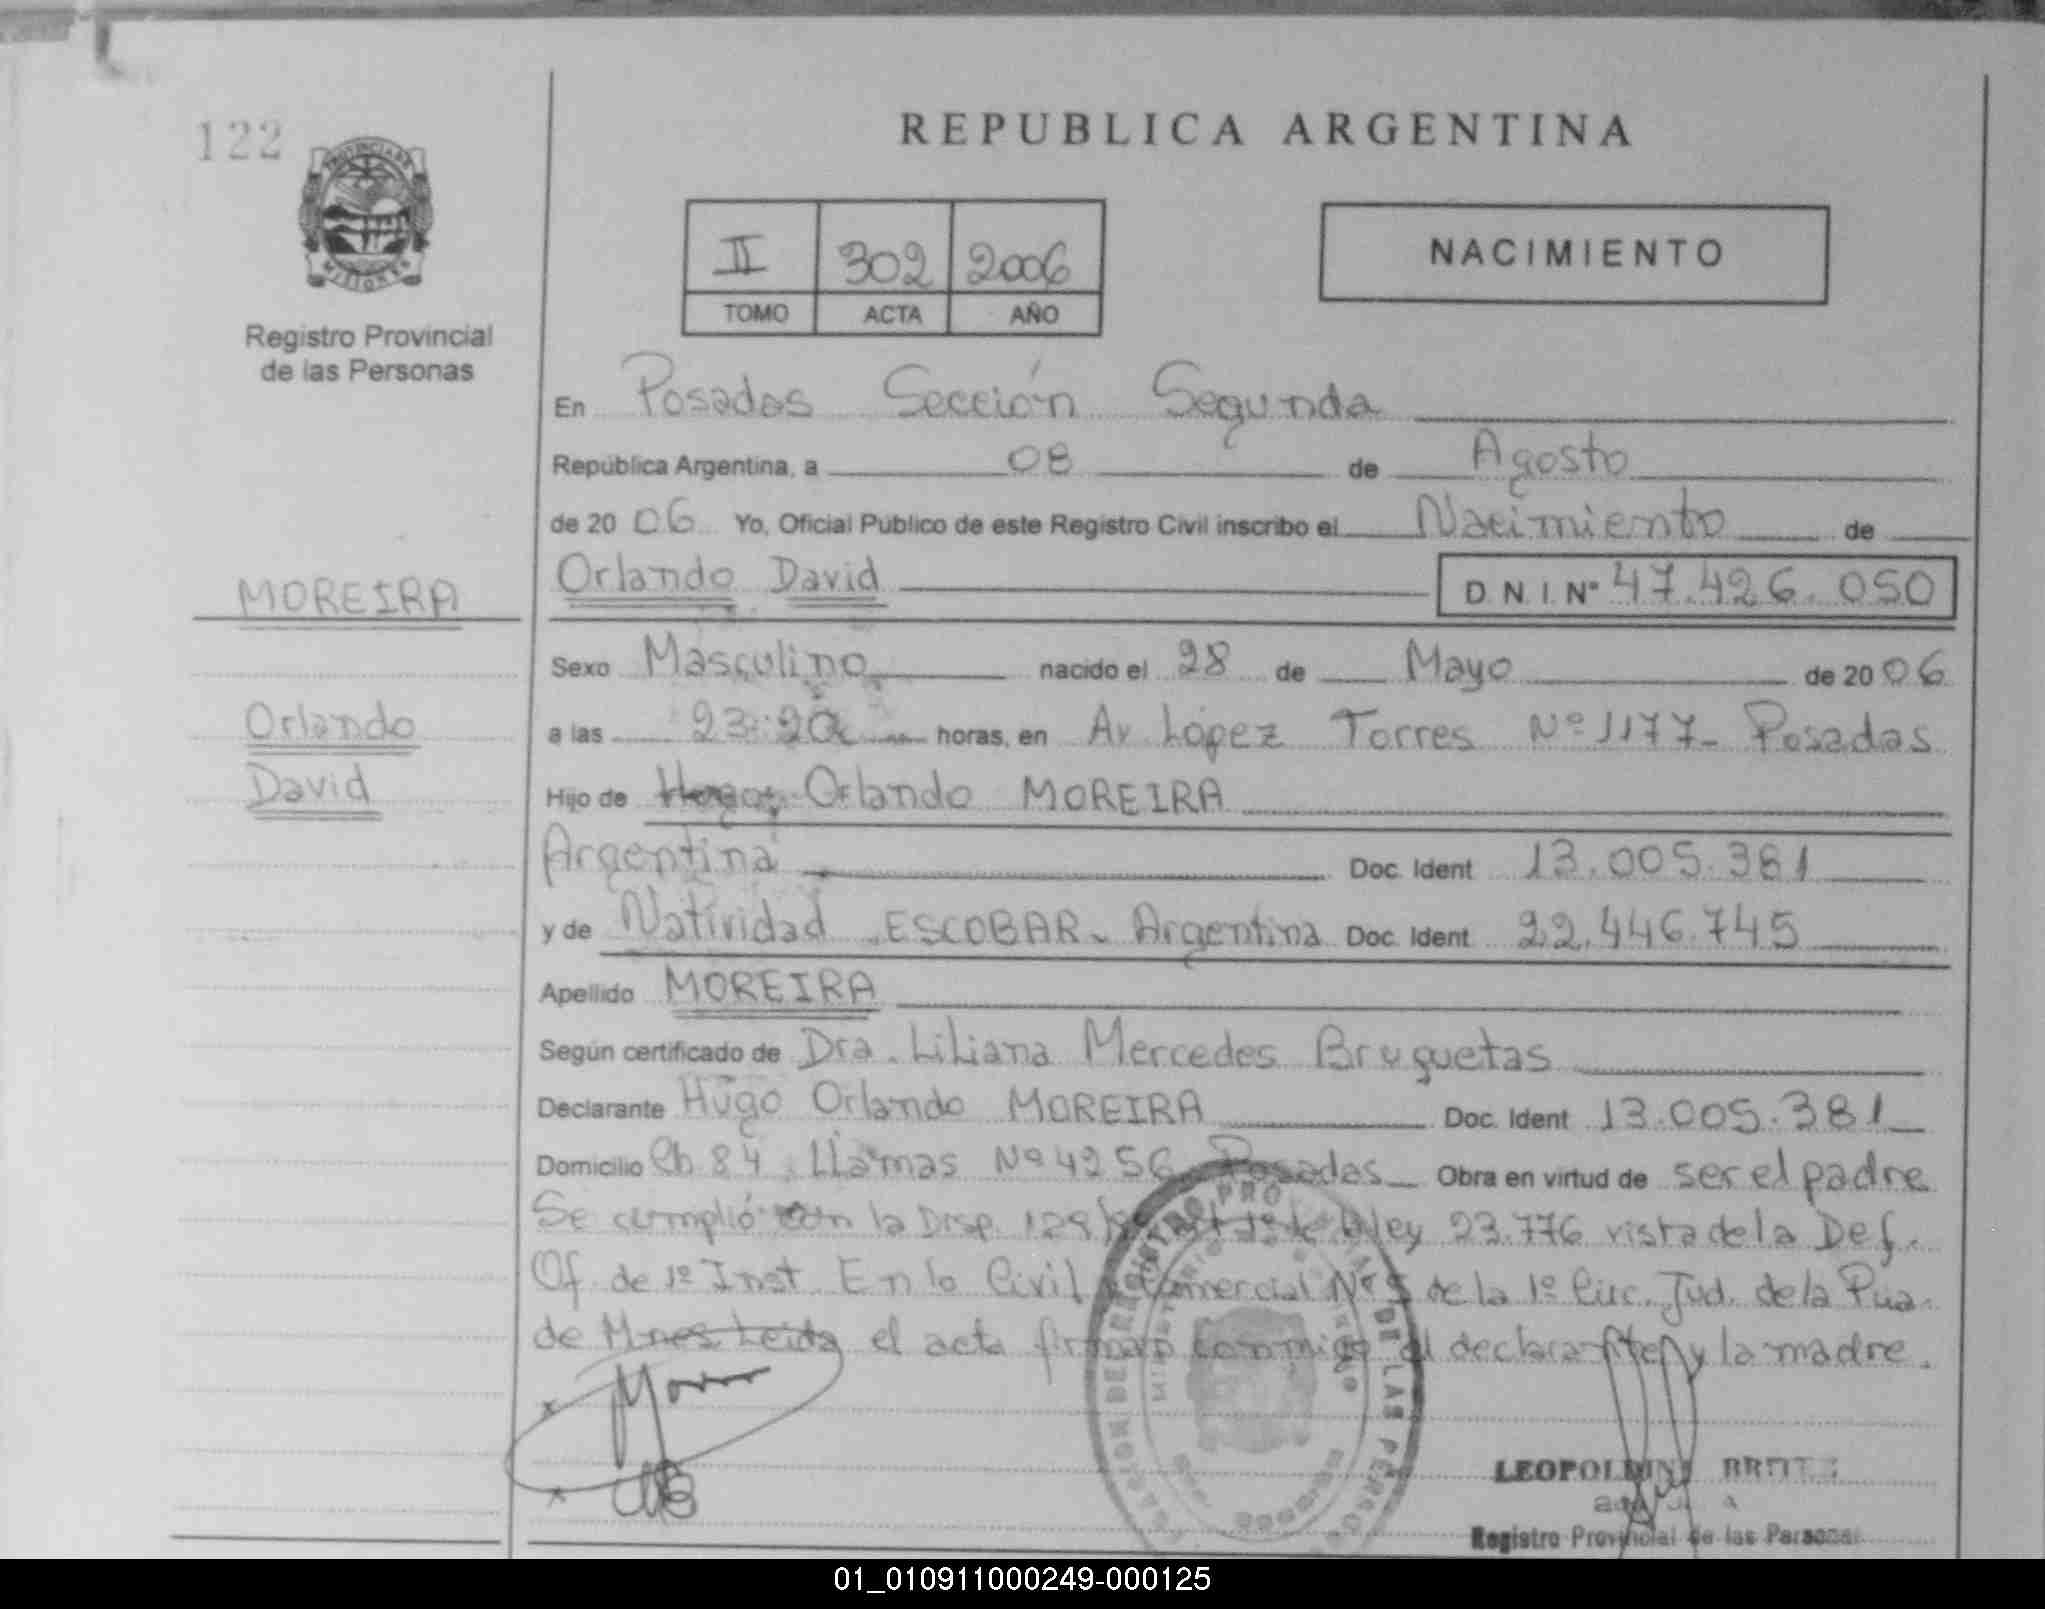 122
PROVINCIA DE
MISIONES
Registro Provincial
de las Personas
REPUBLICA ARGENTINA
II 302 2006
TOMO ACTA AÑO
NACIMIENTO
En Posadas Sección Segunda
República Argentina, a 08 de Agosto
de 20 06 Yo, Oficial Público de este Registro Civil inscribo el Nacimiento de
MOREIRA
Orlando David D.N.I. Nº 47.426.050
Sexo Masculino nacido el 28 de Mayo de 20 06
Orlando
a las 23:20 horas, en Av López Torres Nº 1177- Posadas
David
Hijo de Hugo Orlando MOREIRA
Argentina Doc. Ident 13.005.381
y de Natividad ESCOBAR - Argentina Doc. Ident 22.446.745
Apellido MOREIRA
Según certificado de Dra. Liliana Mercedes Bruquetas
Declarante Hugo Orlando MOREIRA Doc. Ident 13.005.381
Domicilio Ch 84. Llamas Nº 4256 Posadas Obra en virtud de ser el padre
Se cumplió con la Disp. ley 23.776 vista de la Def.
Of. de 1º Inst. En lo Civil y Comercial Nº 5 de la 1º Circ. Jud. de la Pcia.
de Mnes Leida el acta firman conmigo el declarante y la madre.
LEOPOLDINA
Registro Provincial de las Personas
01_010911000249-000125